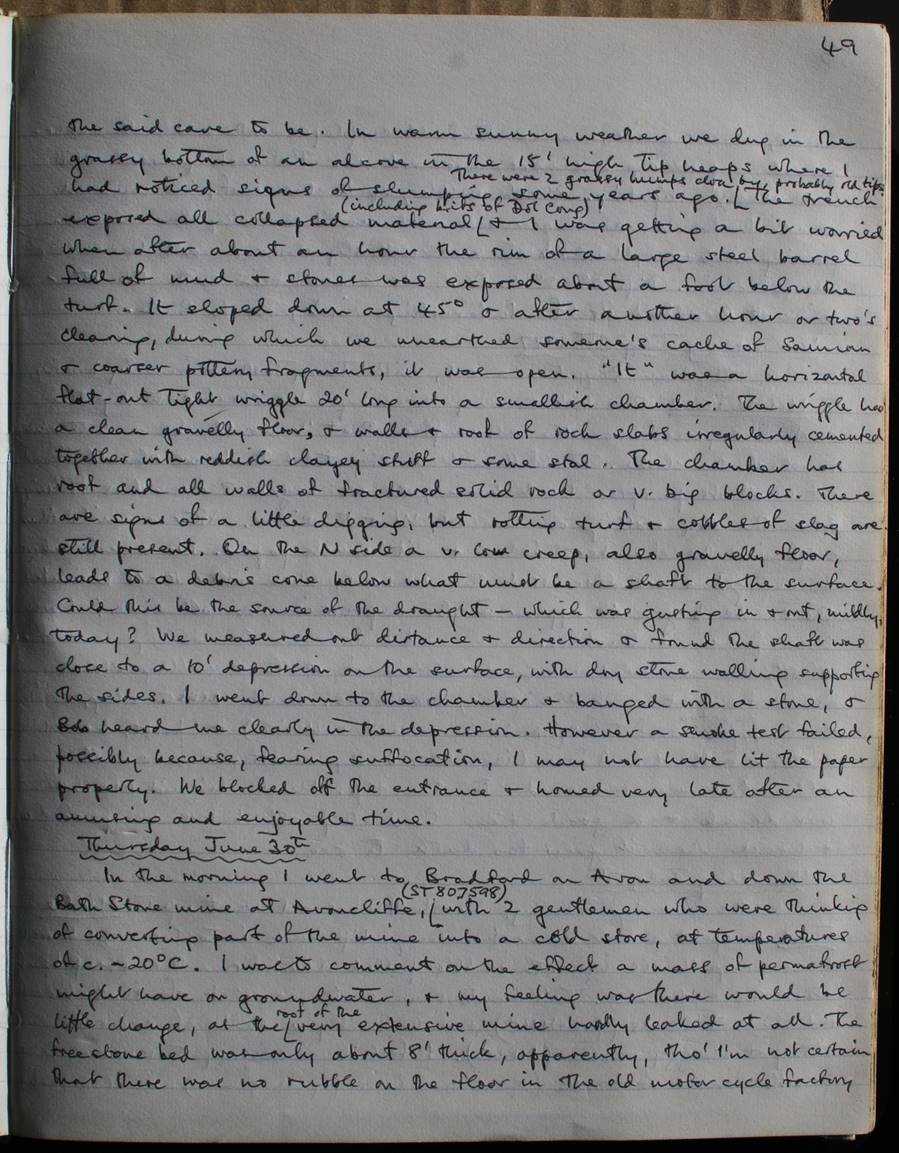 49
the said cave to be. In warm sunny weather we dug in the
grassy bottom of an alcove in the 15' high tip heaps where I
There were 2 grassy humps close by, probably old tips
had noticed signs of slumping some years ago. [The trench
(including bits of Dol Cong)
exposed all collapsed material [+ I was getting a bit worried
when after about an hour the rim of a large steel barrel
full of mud + stones was exposed about a foot below the
turf. It sloped down at 45° & after another hour or two's
clearing, during which we unearthed someone's cache of Samian
+ coarser pottery fragments, it was open. "It" was a horizontal
flat-out tight wriggle 20' long into a smallish chamber. The wriggle has
a clean gravelly floor, + walls + roof of rock slabs irregularly cemented
together with reddish clayey stuff & some stal. The chamber has
roof and all walls of fractured solid rock or v. big blocks. There
are signs of a little digging, but rotting turf + cobbles of slag are
still present. On the N side a v. low creep, also gravelly floor,
leads to a debris cone below what must be a shaft to the surface.
Could this be the source of the draught – which was gusting in + out, mildly,
today? We measured out distance + direction & found the shaft was
close to a 10' depression on the surface, with dry stone walling supporting
the sides. I went down to the chamber + banged with a stone, &
Bob heard me clearly in the depression. However a smoke test failed,
possibly because, fearing suffocation, I may not have lit the paper
properly. We blocked off the entrance + homed very late after an
amusing and enjoyable time.
Thursday June 30th
In the morning I went to Bradford on Avon and down the
(ST 807598)
Bath Stone mine at Avoncliffe, [with 2 gentlemen who were thinking
of converting part of the mine into a cold store, at temperatures
of c. -20°C. I was to comment on the effect a mass of permafrost
might have on groundwater, + my feeling was there would be
roof of the
little change, as the [very extensive mine hardly leaked at all. The
freestone bed was only about 8' thick, apparently, tho' I'm not certain
that there was no rubble on the floor in the old motor cycle factory